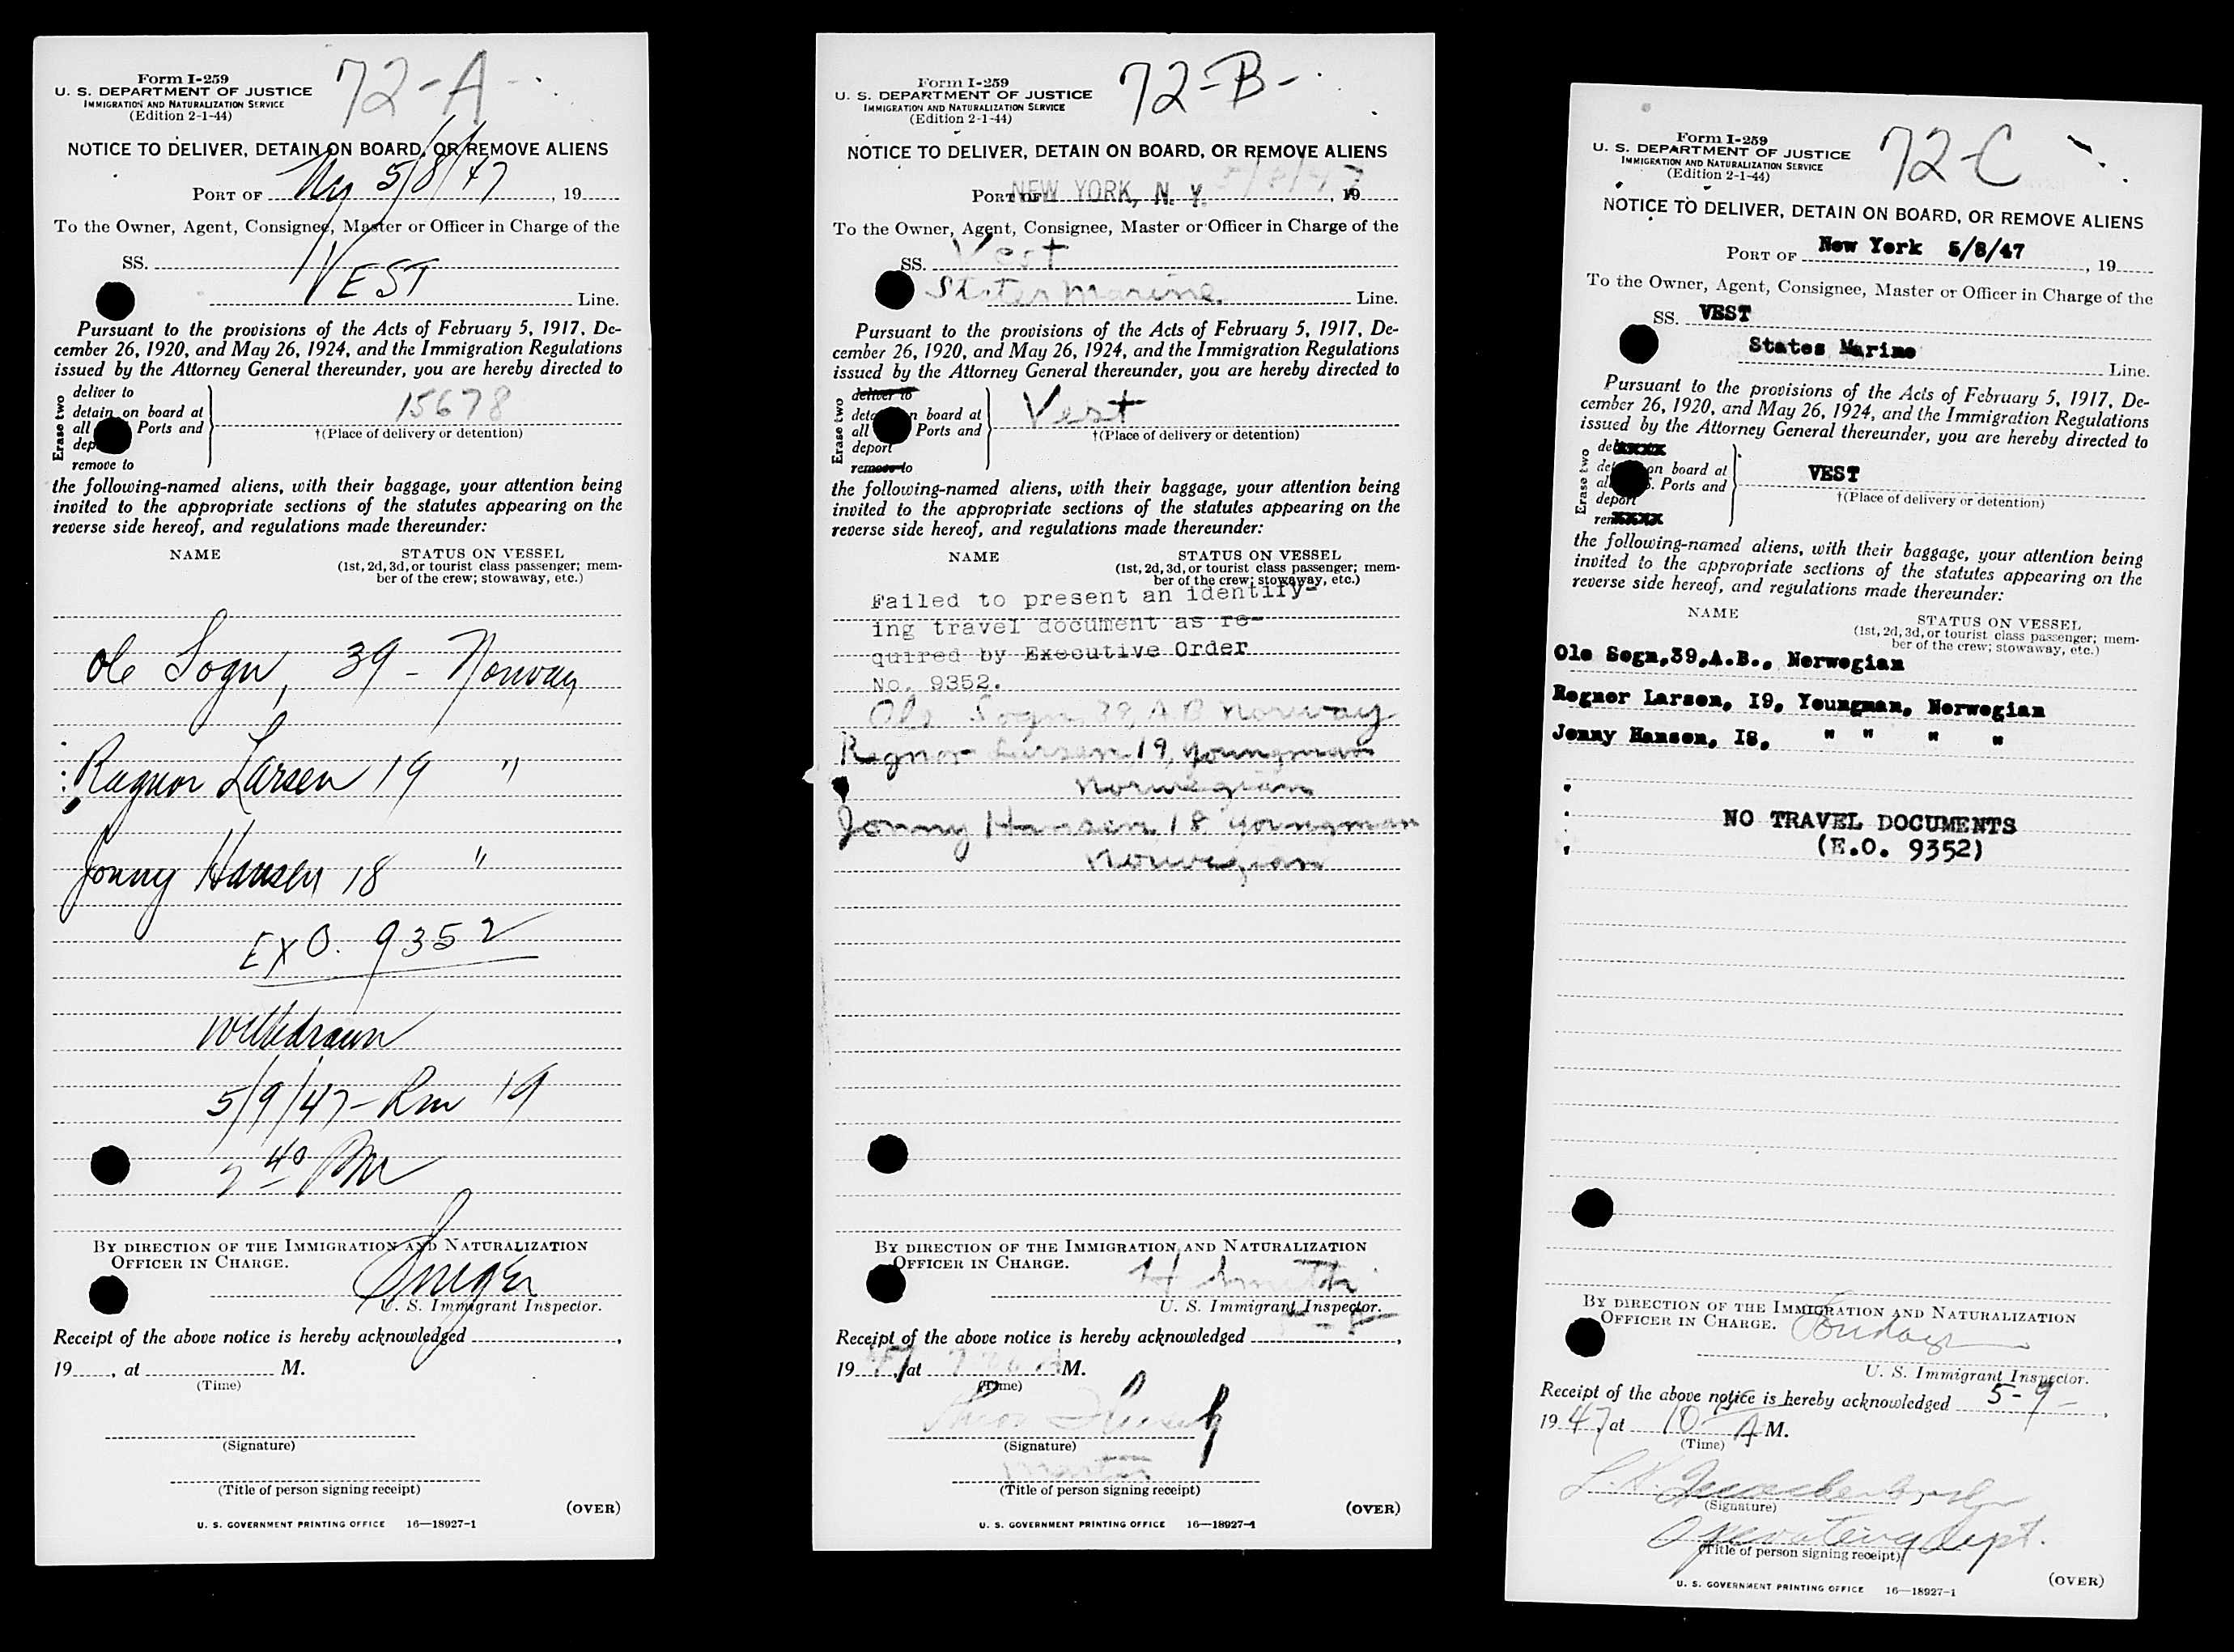 Form I-259
U. S. DEPARTMENT OF JUSTICE
IMMIGRATION AND NATURALIZATION SERVICE
(Edition 2-1-44)
72-A-
NOTICE TO DELIVER, DETAIN ON BOARD, OR REMOVE ALIENS
PORT OF Ny 5/8/47, 19
To the Owner, Agent, Consignee, Master or Officer in Charge of the
SS. VEST
Line.
Pursuant to the provisions of the Acts of February 5, 1917, De-
cember 26, 1920, and May 26, 1924, and the Immigration Regulations
issued by the Attorney General thereunder, you are hereby directed to
Erase two
deliver to
detain on board at
all Ports and
dep
remove to
15678
†(Place of delivery or detention)
the following-named aliens, with their baggage, your attention being
invited to the appropriate sections of the statutes appearing on the
reverse side hereof, and regulations made thereunder:
NAME STATUS ON VESSEL
(1st, 2d, 3d, or tourist class passenger; mem-
ber of the crew; stowaway, etc.)
Ole Sogn, 39 - Norway
Ragnor Larsen 19 "
Jonny Hansen 18 "
EXO. 9352
Withdrawn
5/9/47 - Rm 19
2 40 PM
BY DIRECTION OF THE IMMIGRATION AND NATURALIZATION
OFFICER IN CHARGE.
U. S. Immigrant Inspector.
Receipt of the above notice is hereby acknowledged ,
19 , at M.
(Time)
(Signature)
(Title of person signing receipt)
(OVER)
U. S. GOVERNMENT PRINTING OFFICE 16—18927-1
Form I-259
U. S. DEPARTMENT OF JUSTICE
IMMIGRATION AND NATURALIZATION SERVICE
(Edition 2-1-44)
72-B-
NOTICE TO DELIVER, DETAIN ON BOARD, OR REMOVE ALIENS
PORT OF NEW YORK, N. Y. 5/8/47, 19
To the Owner, Agent, Consignee, Master or Officer in Charge of the
SS. Vest
States Marine Line.
Pursuant to the provisions of the Acts of February 5, 1917, De-
cember 26, 1920, and May 26, 1924, and the Immigration Regulations
issued by the Attorney General thereunder, you are hereby directed to
Erase two
deliver to
deta n board at
all Ports and
deport
remove to
Vest
†(Place of delivery or detention)
the following-named aliens, with their baggage, your attention being
invited to the appropriate sections of the statutes appearing on the
reverse side hereof, and regulations made thereunder:
NAME STATUS ON VESSEL
(1st, 2d, 3d, or tourist class passenger; mem-
ber of the crew; stowaway, etc.)
Failed to present an identify-
ing travel document as re-
quired by Executive Order
No. 9352.
Ole Sogn, 39, A B Norway
Regnor Larsen, 19, youngman
Norwegian
Jonny Hansen, 18 youngman
Norwegian
BY DIRECTION OF THE IMMIGRATION AND NATURALIZATION
OFFICER IN CHARGE.
H Smith
U. S. Immigrant Inspector.
Receipt of the above notice is hereby acknowledged ,
19 47, at M.
(Time)
(Signature)
Master
(Title of person signing receipt)
(OVER)
U. S. GOVERNMENT PRINTING OFFICE 16—18927-1
Form I-259
U. S. DEPARTMENT OF JUSTICE
IMMIGRATION AND NATURALIZATION SERVICE
(Edition 2-1-44)
72-C
NOTICE TO DELIVER, DETAIN ON BOARD, OR REMOVE ALIENS
PORT OF New York 5/8/47, 19
To the Owner, Agent, Consignee, Master or Officer in Charge of the
SS. VEST
States Marine
Line.
Pursuant to the provisions of the Acts of February 5, 1917, De-
cember 26, 1920, and May 26, 1924, and the Immigration Regulations
issued by the Attorney General thereunder, you are hereby directed to
Erase two
de xxxx
det on board at
al S. Ports and
deport
rem xxxx
VEST
†(Place of delivery or detention)
the following-named aliens, with their baggage, your attention being
invited to the appropriate sections of the statutes appearing on the
reverse side hereof, and regulations made thereunder:
NAME STATUS ON VESSEL
(1st, 2d, 3d, or tourist class passenger; mem-
ber of the crew; stowaway, etc.)
Ole Sogn,39,A.B., Norwegian
Regner Larsen, I9, Youngman, Norwegian
Jonny Hansen, I8, " " " "
NO TRAVEL DOCUMENTS
(E.O. 9352)
BY DIRECTION OF THE IMMIGRATION AND NATURALIZATION
OFFICER IN CHARGE.
U. S. Immigrant Inspector.
Receipt of the above notice is hereby acknowledged 5-9-,
19 47, at 10 A M.
(Time)
(Signature)
Operating Dept.
(Title of person signing receipt)
(OVER)
U. S. GOVERNMENT PRINTING OFFICE 16—18927-1